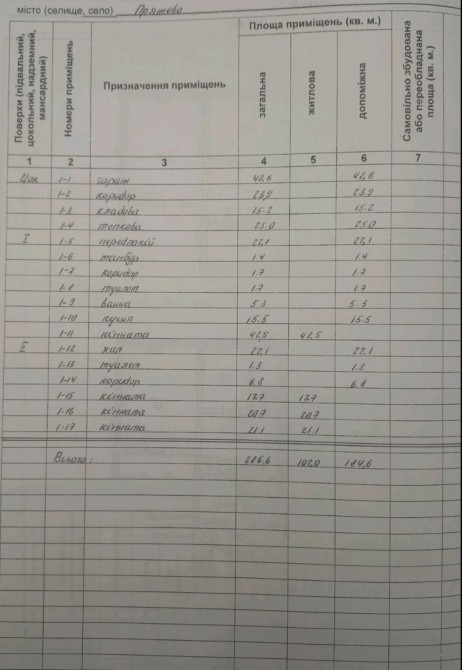 місто (селище, село) Пряжево
Поверхи (підвальний, цокольний, надземний, мансардний)
Номери приміщень
Призначення приміщень
Площа приміщень (кв. м.)
загальна
житлова
допоміжна
Самовільно збудована або переобладнана площа (кв. м.)
1 2 3 4 5 6 7
Цок 1-1 гараж 42,6 42,6
1-2 коридор 23,9 23,9
1-3 кладова 15.2 15.2
1-4 топкова 25.0 25.0
I 1-5 передпокій 22,1 22,1
1-6 тамбур 1.4 1.4
1-7 коридор 1.7 1.7
1-8 туалет 1.7 1.7
1-9 ванна 5.3 5.3
1-10 кухня 15.5 15.5
1-11 кімната 42,5 42,5
1-12 хол 22,1 22,1
1-13 туалет 1.3 1.3
1-14 коридор 6.8 6.8
1-15 кімната 17.7 17.7
1-16 кімната 20.7 20.7
1-17 кімната 21.1 21.1
Всього: 286,6 102,0 184,6